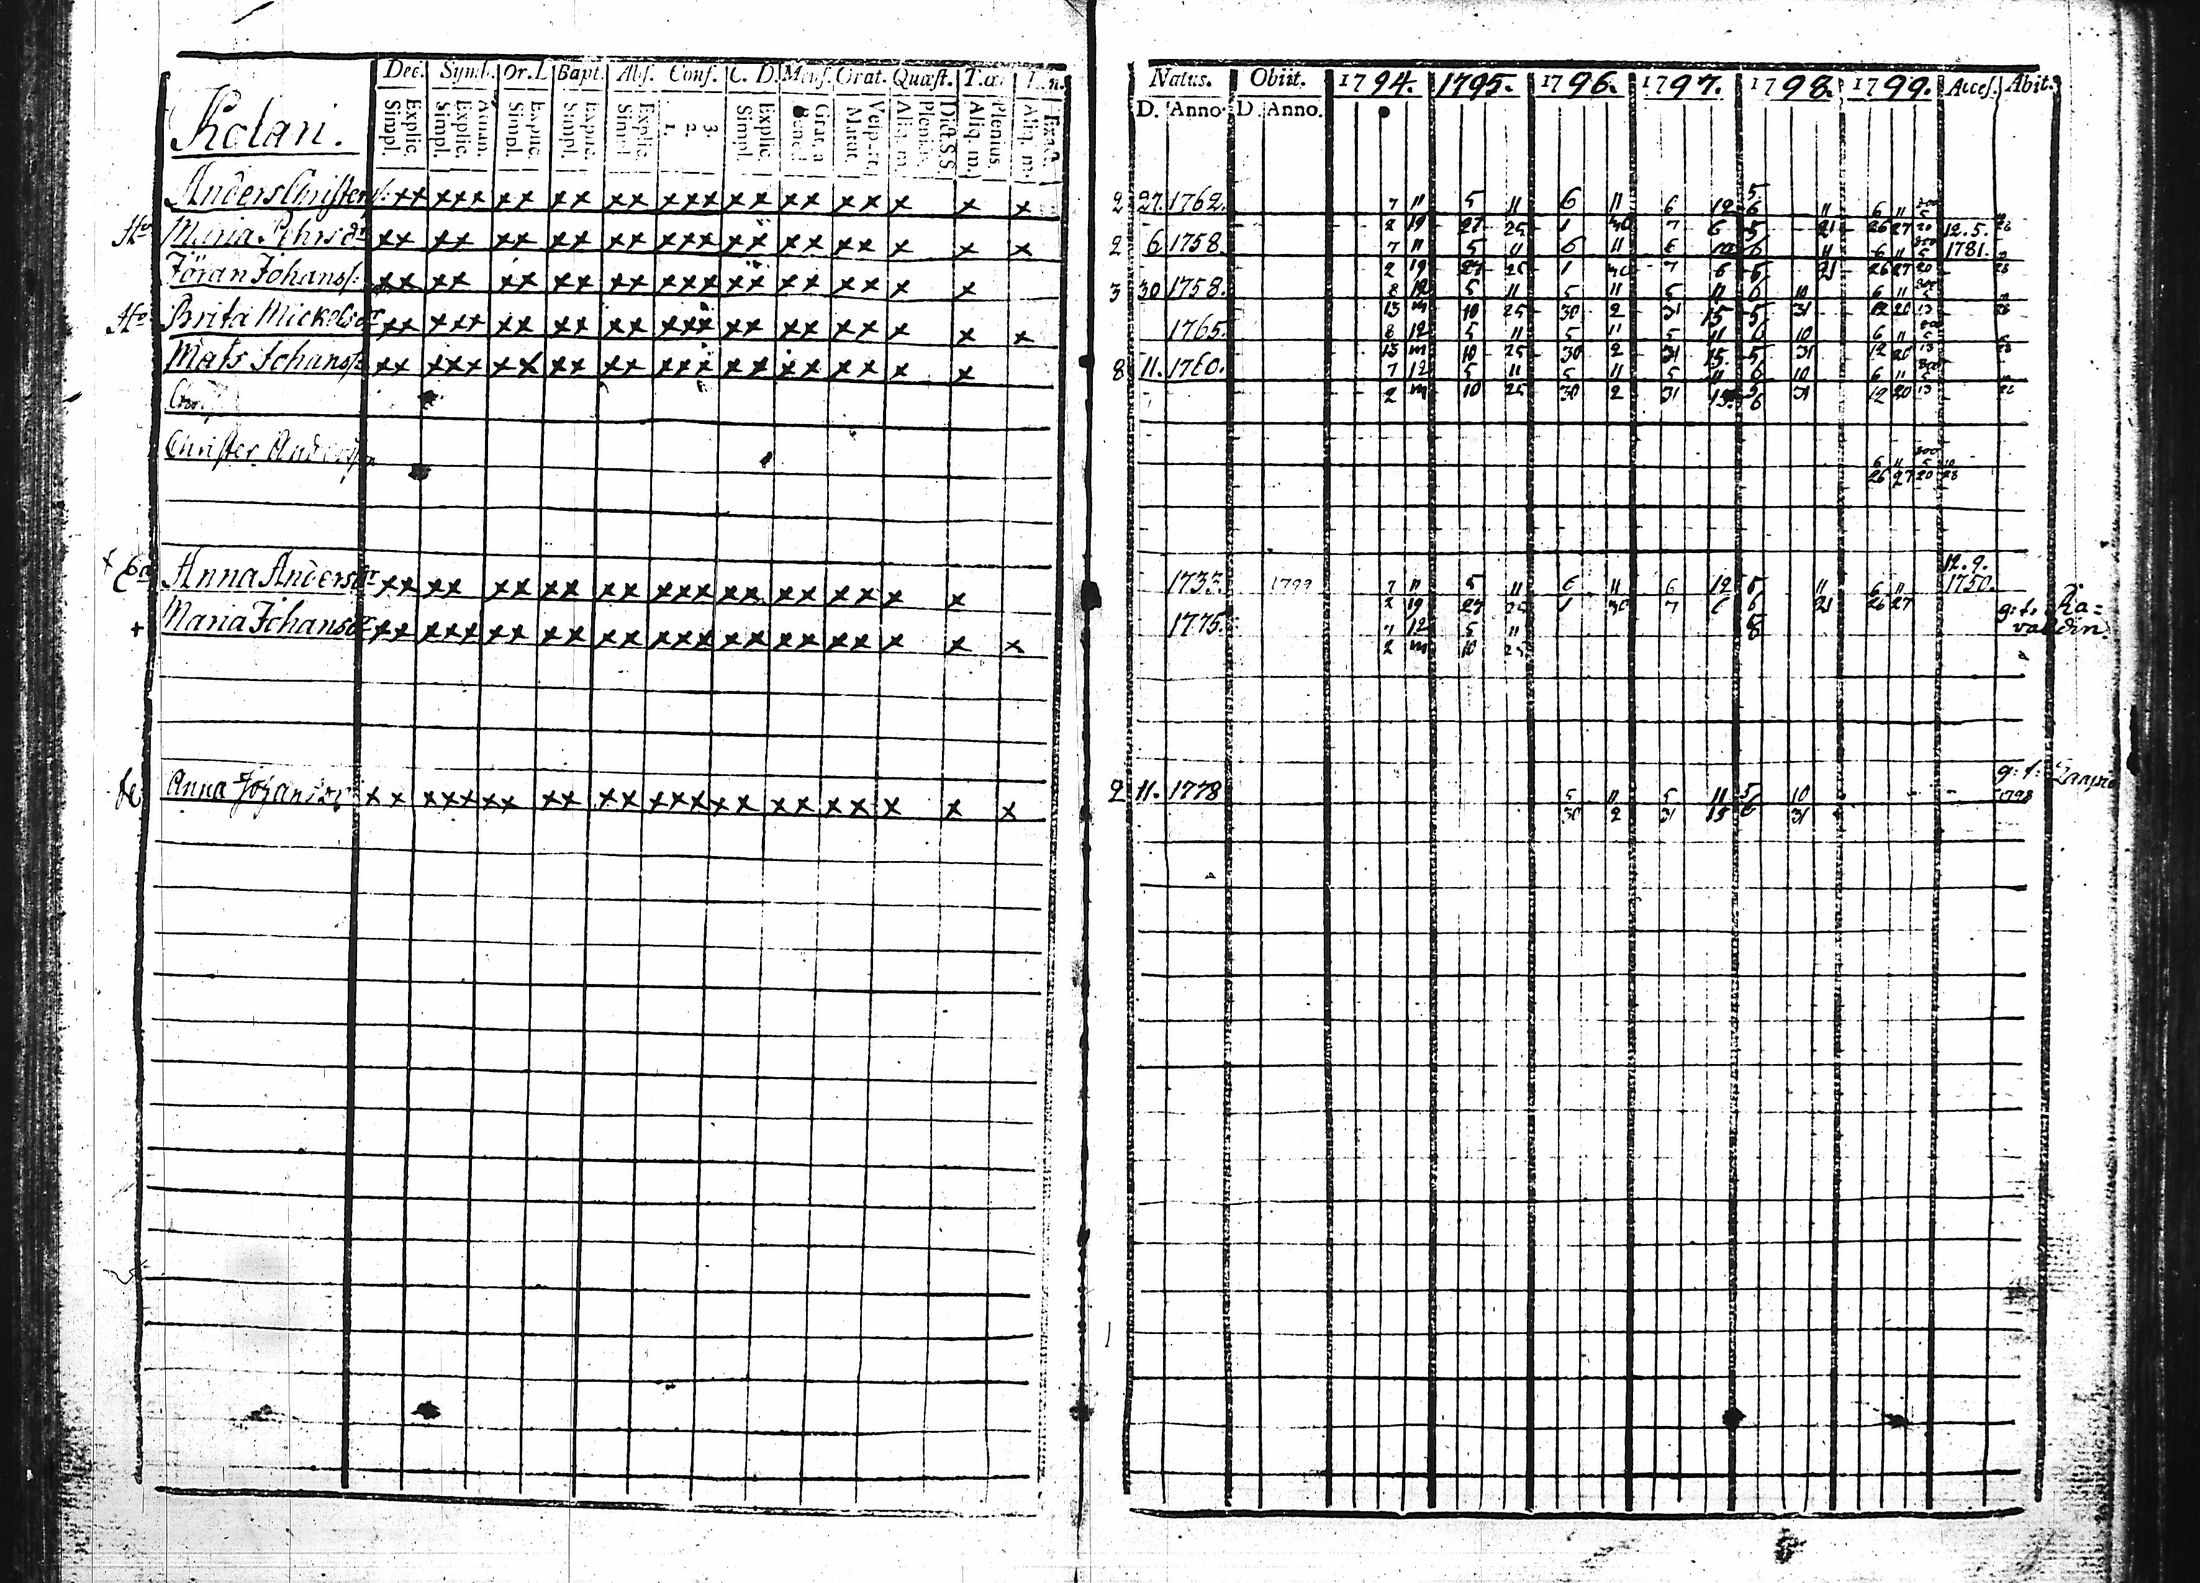 Kolari.
Dec. Symb. Or. D. Bapt. Abs. Conf. C. D. Mens. Orat. Quæst. T. æ.
Explic. Simpl. Athan. Explic. Simpl. Explic. Simpl. Explic. Simpl. Explic. Simpl. 3. 2. 1. Explic. Simpl. Grat. a Bened. Vespert. Matut. Dict. S.S. Plenius. Aliq. m. Plenius. Aliq. m. Aliq. m.
Natus. Obiit. 1794. 1795. 1796. 1797. 1798. 1799. Acces. Abit.
D. Anno. D. Anno.
Anders Christers: xx xxx xx xx xx xxx xx xx xx x x x
2 27. 1762. 7 11 5 11 6 11 6 12 5 6 11 6 11
Hu Maria Pehrsdr xx xx xx xx xx xxx xx xx xx x x x
2 19 27 25 1 30 7 6 5 21 26 27 20 12. 5.
2 6 1758. 7 11 5 11 6 11 6 12 6 11 6 11 5 1781.
Jöran Johanss: xx xx xx xx xx xxx xx xx xx x x
2 19 27 25 1 30 7 6 5 21 26 27 20
3 30 1758. 8 12 5 11 5 11 5 11 6 10 6 11 5
Hu Brita Mickelsdr xx xxx xx xx xx xxx xx xx xx x x x
13 m 10 25 30 2 31 15 5 31 12 20 13
1765. 8 12 5 11 5 11 5 11 6 10 6 11 5
Mats Johanss: xx xxx xx xx xx xxx xx xx xx x x
13 m 10 25 30 2 31 15 5 31 12 20 13
8 11. 1760. 7 12 5 11 5 11 5 11 6 10 6 11 5
2 m 10 25 30 2 31 15 6 31 12 20 13
Christer Anderss
6 11 5 10
26 27 20 28
Anna Andersdr xx xx xx xx xx xxx xx xx xx x x
12. 9.
1733. 1799 7 11 5 11 6 11 6 12 5 11 6 11 1750.
2 19 27 25 1 30 7 6 6 21 26 27
+ Maria Johansdr xx xxx xx xx xx xxx xx xx xx x x x
1775. 7 12 5 11
2 m 10 25
g: t:
Anna Johansdr xx xxx xx xx xx xxx xx xx xx x x x
2 11. 1778 5 11 5 11 5 10 1798
30 2 31 15 6 31
g: t: